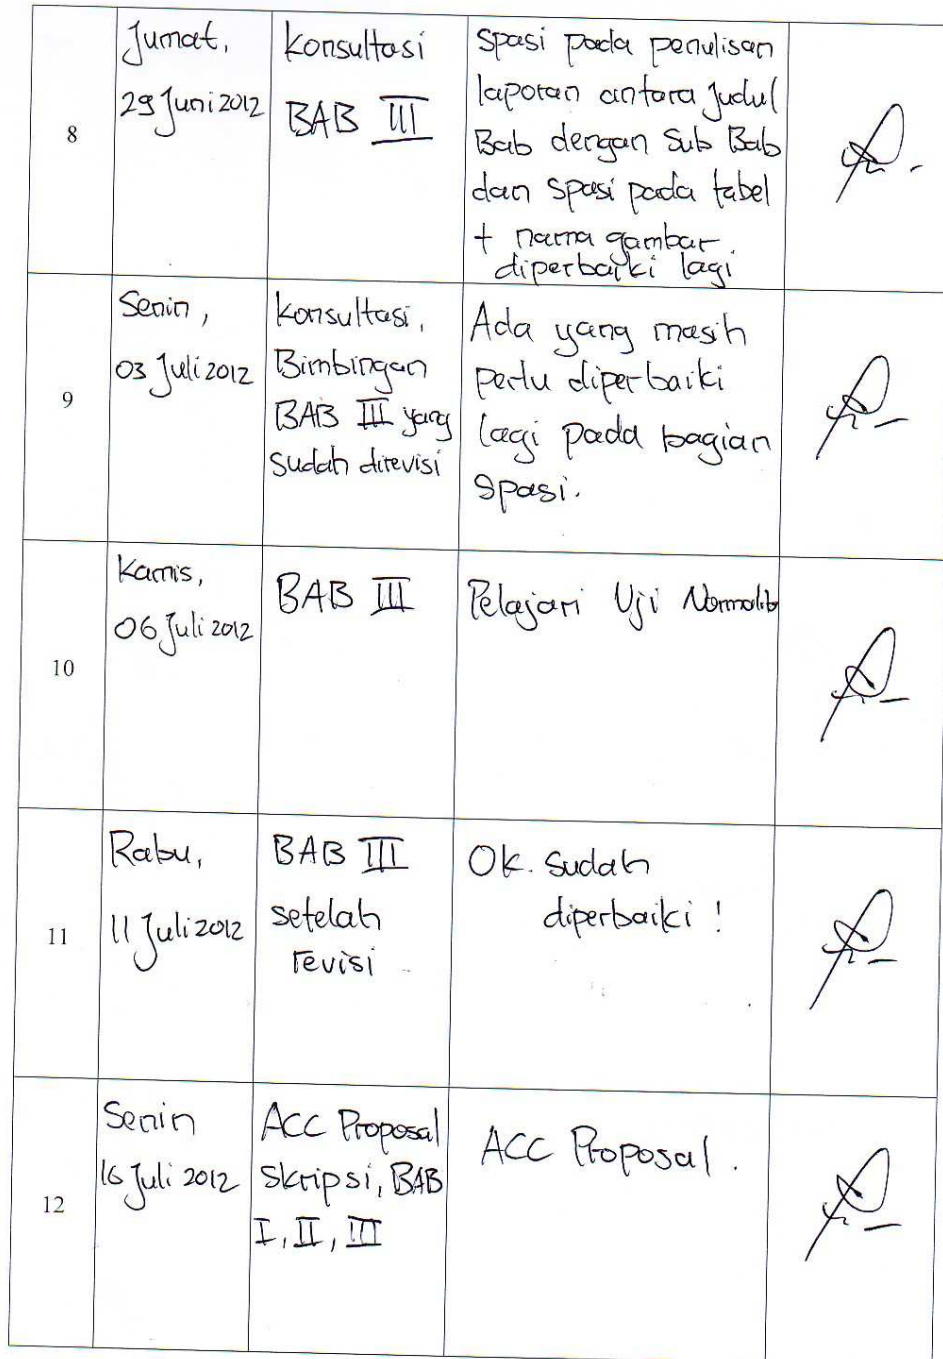 8
Jumat,
29 Juni 2012
Konsultasi
BAB III
Spasi pada penulisan
laporan antara Judul
Bab dengan Sub Bab
dan Spasi pada tabel
+ nama gambar.
diperbaiki lagi
9
Senin,
03 Juli 2012
Konsultasi,
Bimbingan
BAB III yang
sudah direvisi
Ada yang masih
perlu diperbaiki
lagi pada bagian
Spasi.
10
Kamis,
06 Juli 2012
BAB III
Pelajari Uji
11
Rabu,
11 Juli 2012
BAB III
setelah
revisi
Ok. Sudah
diperbaiki !
12
Senin
16 Juli 2012
ACC Proposal
Skripsi, BAB
I, II, III
ACC Proposal.